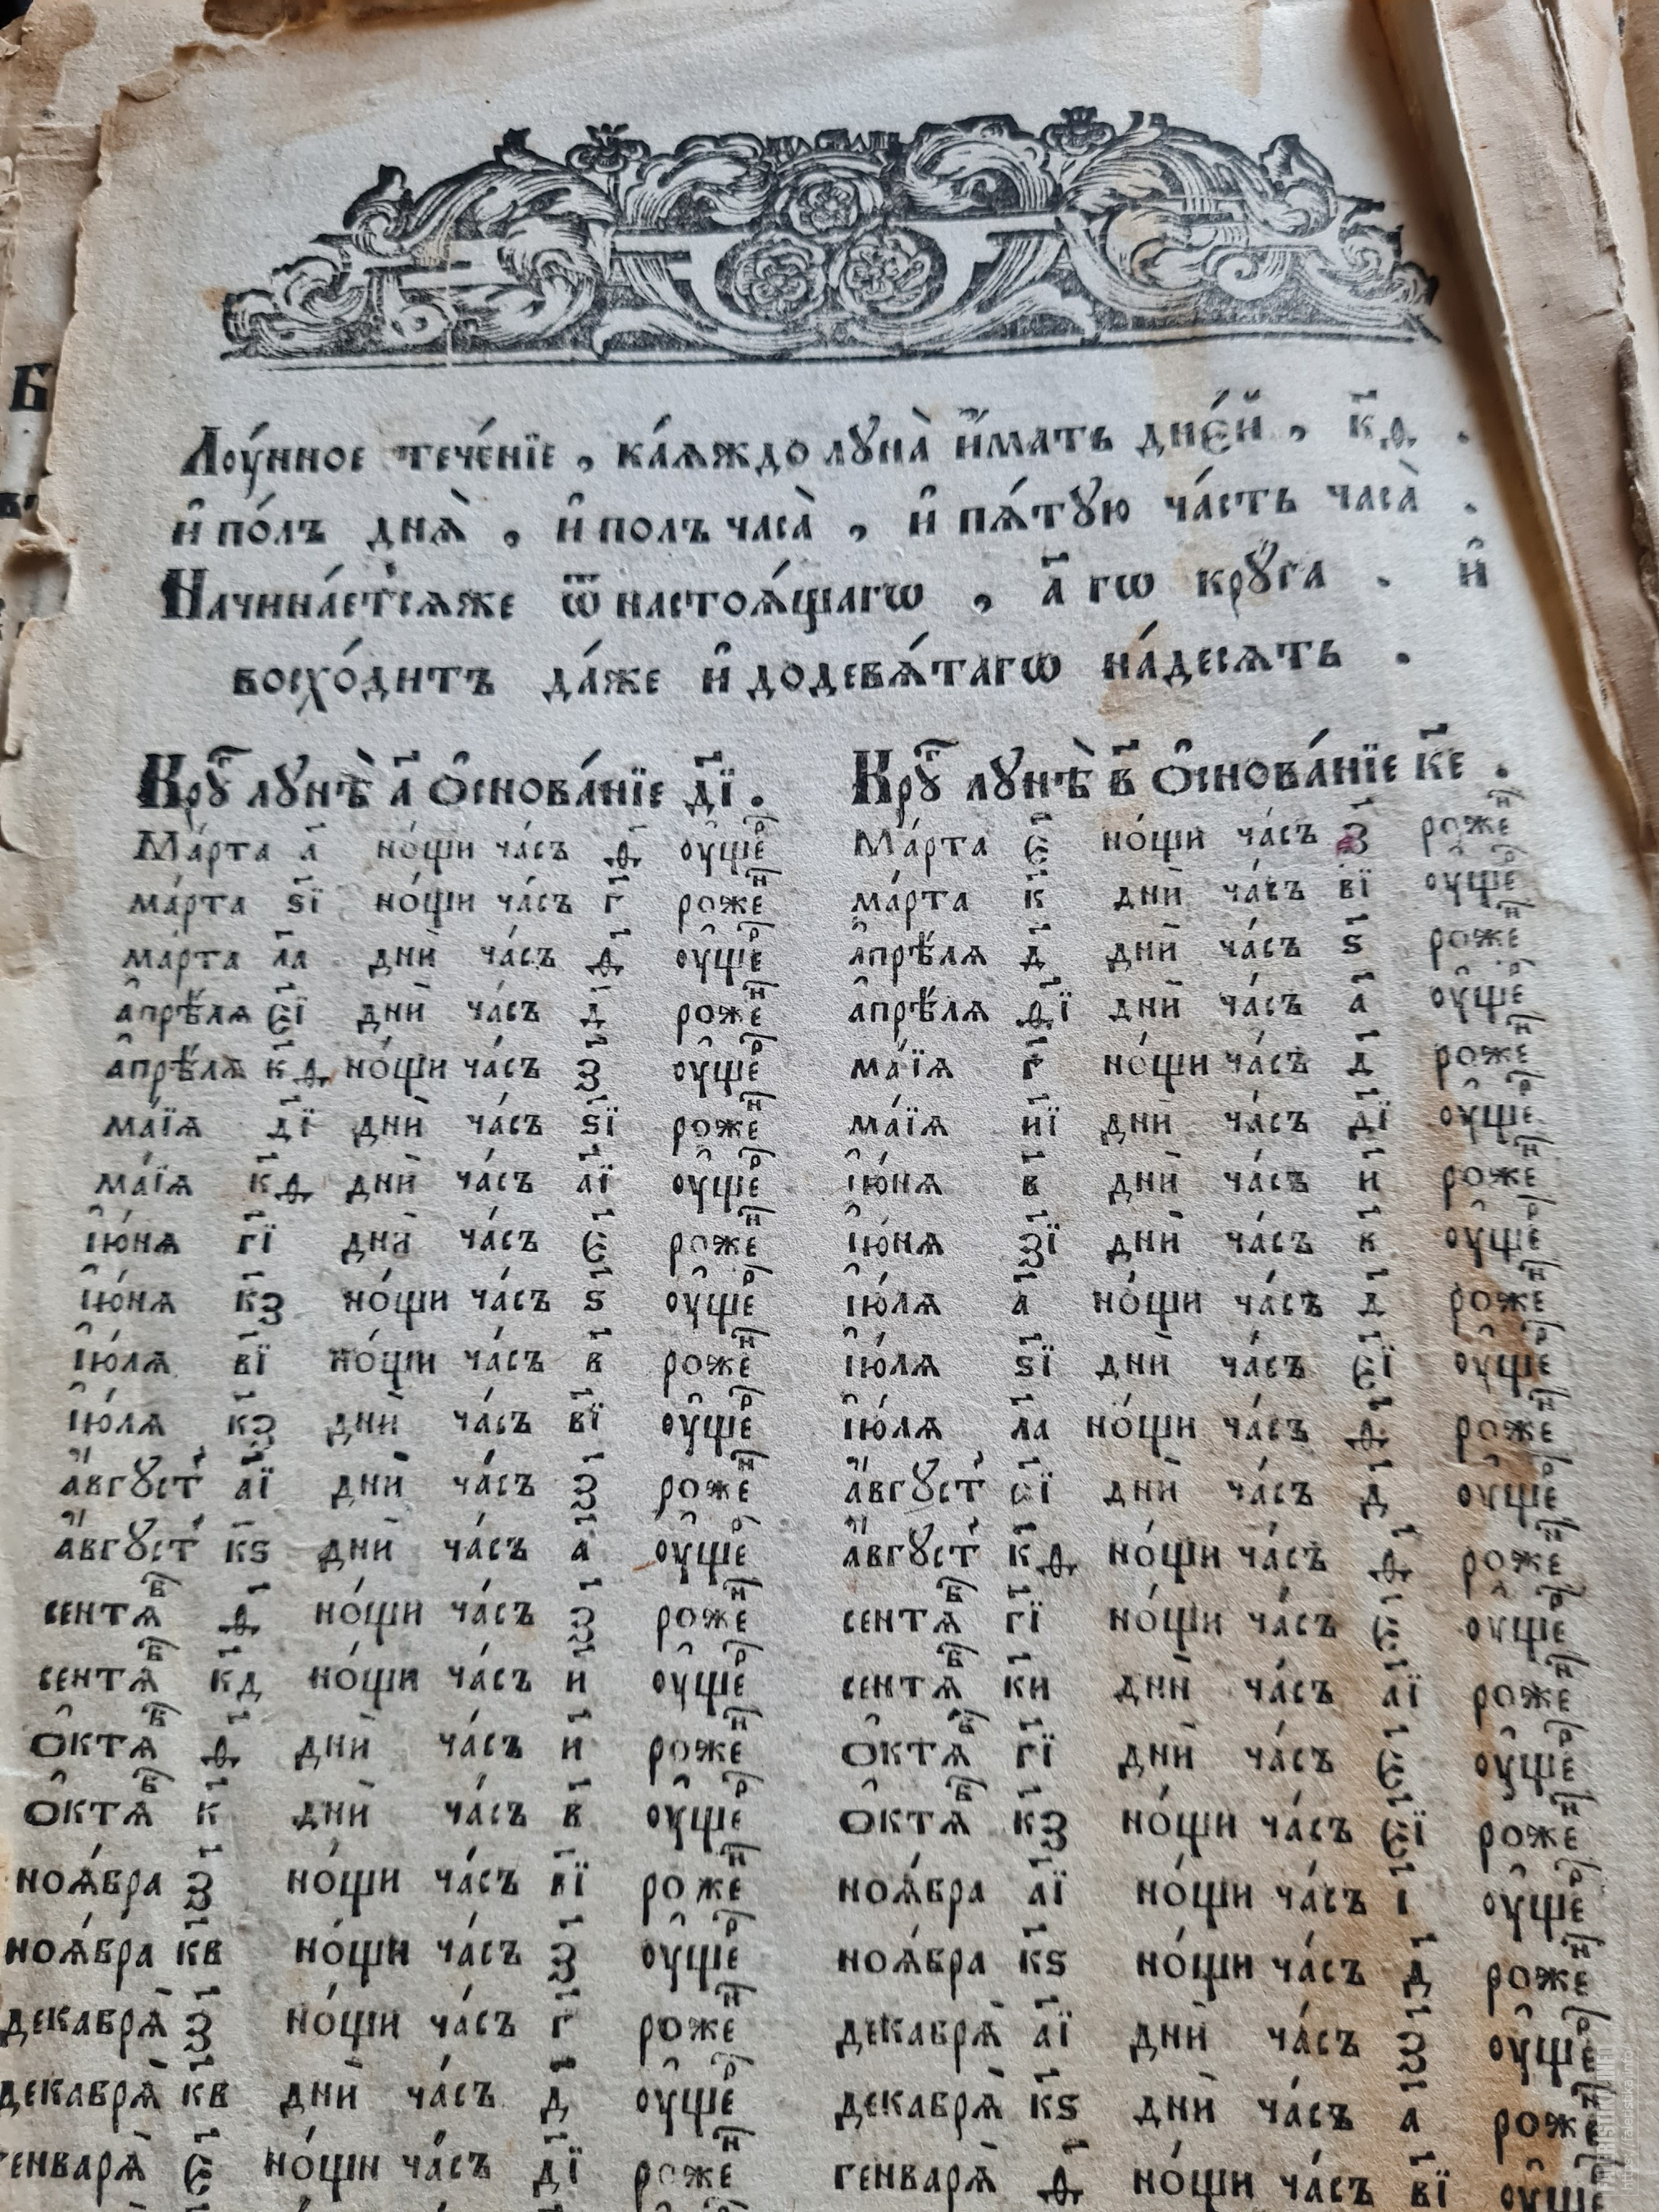 Лоу́нное тече́нїе , ка́ѧждо лꙋна̀ и҆́мать дне́й , к҃ѳ .
и҆ по́лъ днѧ̀ , и҆ полъ часа̀ , и҆ пѧ́тꙋю ча́сть часа̀ .
Начина́етсѧже ѿ настоѧ́щагѡ , а҃ гѡ крꙋ́га . и҆
восхо́дитъ да́же и҆ додевѧ́тагѡ на́десѧть .
Крꙋⷢ҇ лꙋнѣ̀ а҃ Ѻ҆снова́нїе д҃і .
Ма́рта а҃ но́щи ча́съ ѳ҃ оу҆ще́ⷬ҇
ма́рта ѕ҃і но́щи ча́съ г҃ роже́ⷩ҇
ма́рта л҃а днѝ ча́съ ѳ҃ оу҆ще́ⷬ҇
а҆прѣ́лѧ е҃і днѝ ча́съ д҃ роже́ⷩ҇
а҆прѣ́лѧ к҃ѳ но́щи ча́съ з҃ оу҆ще́ⷬ҇
ма́їѧ д҃і днѝ ча́съ ѕ҃і роже́ⷩ҇
ма́їѧ к҃ѳ днѝ ча́съ а҃і оу҆ще́ⷬ҇
і҆ю́нѧ г҃і днѝ ча́съ е҃ роже́ⷩ҇
і҆ю́нѧ к҃з но́щи ча́съ ѕ҃ оу҆ще́ⷬ҇
і҆ю́лѧ в҃і но́щи ча́съ в҃ роже́ⷩ҇
і҆ю́лѧ к҃з днѝ ча́съ в҃і оу҆ще́ⷬ҇
а҆́вгꙋст а҃і днѝ ча́съ з҃ роже́ⷩ҇
а҆́вгꙋст к҃ѕ днѝ ча́съ а҃ оу҆ще́ⷬ҇
сентѧⷡ҇ ѳ҃ но́щи ча́съ з҃ роже́ⷩ҇
сентѧⷡ҇ к҃д но́щи ча́съ и҃ оу҆ще́ⷬ҇
Ѻ҆ктѧⷡ҇ ѳ҃ днѝ ча́съ и҃ роже́ⷩ҇
Ѻ҆ктѧⷡ҇ к҃ днѝ ча́съ в҃ оу҆ще́ⷬ҇
ноѧ́брѧ з҃ но́щи ча́съ в҃і роже́ⷩ҇
ноѧ́бра к҃в но́щи ча́съ з҃ оу҆ще́ⷬ҇
декабрѧ̀ з҃ но́щи ча́съ г҃ роже́ⷩ҇
декабрѧ̀ к҃в днѝ ча́съ д҃ оу҆ще́ⷬ҇
генварѧ̀ е҃ но́щи ча́съ д҃і роже́ⷩ҇
Крꙋⷢ҇ лꙋнѣ̀ в҃ Ѻ҆снова́нїе к҃е .
Ма́рта е҃ но́щи ча́съ з҃ роже́ⷩ҇
ма́рта к҃ днѝ ча́съ в҃і оу҆ще́ⷬ҇
а҆прѣ́лѧ д҃ днѝ ча́съ ѕ҃ роже́ⷩ҇
а҆прѣ́лѧ ѳ҃і днѝ ча́съ а҃ оу҆ще́ⷬ҇
ма́їѧ г҃ но́щи ча́съ д҃ роже́ⷩ҇
ма́їѧ и҃і днѝ ча́съ д҃і оу҆ще́ⷬ҇
і҆ю́нѧ в҃ днѝ ча́съ и҃ роже́ⷩ҇
і҆ю́нѧ з҃і днѝ ча́съ к҃ оу҆ще́ⷬ҇
і҆ю́лѧ а҃ но́щи ча́съ д҃ роже́ⷩ҇
і҆ю́лѧ ѕ҃і днѝ ча́съ е҃і оу҆ще́ⷬ҇
і҆ю́лѧ л҃а но́щи ча́съ ѳ҃ роже́ⷩ҇
а҆́вгꙋст е҃і днѝ ча́съ д҃ оу҆ще́ⷬ҇
а҆́вгꙋст к҃ѳ но́щи ча́съ ѳ҃ роже́ⷩ҇
сентѧⷡ҇ г҃і но́щи ча́съ е҃ оу҆ще́ⷬ҇
сентѧⷡ҇ к҃и днѝ ча́съ а҃і роже́ⷩ҇
Ѻ҆ктѧⷡ҇ г҃і днѝ ча́съ е҃ оу҆ще́ⷬ҇
Ѻ҆ктѧⷡ҇ к҃з но́щи ча́съ е҃і роже́ⷩ҇
ноѧ́бра а҃і но́щи ча́съ і҃ оу҆ще́ⷬ҇
ноѧ́бра к҃ѕ но́щи ча́съ д҃ роже́ⷩ҇
декабрѧ̀ а҃і днѝ ча́съ з҃ оу҆ще́ⷬ҇
декабрѧ̀ к҃ѕ днѝ ча́съ а҃ роже́ⷩ҇
генварѧ̀ ѳ҃ но́щи ча́съ в҃і оу҆ще́ⷬ҇